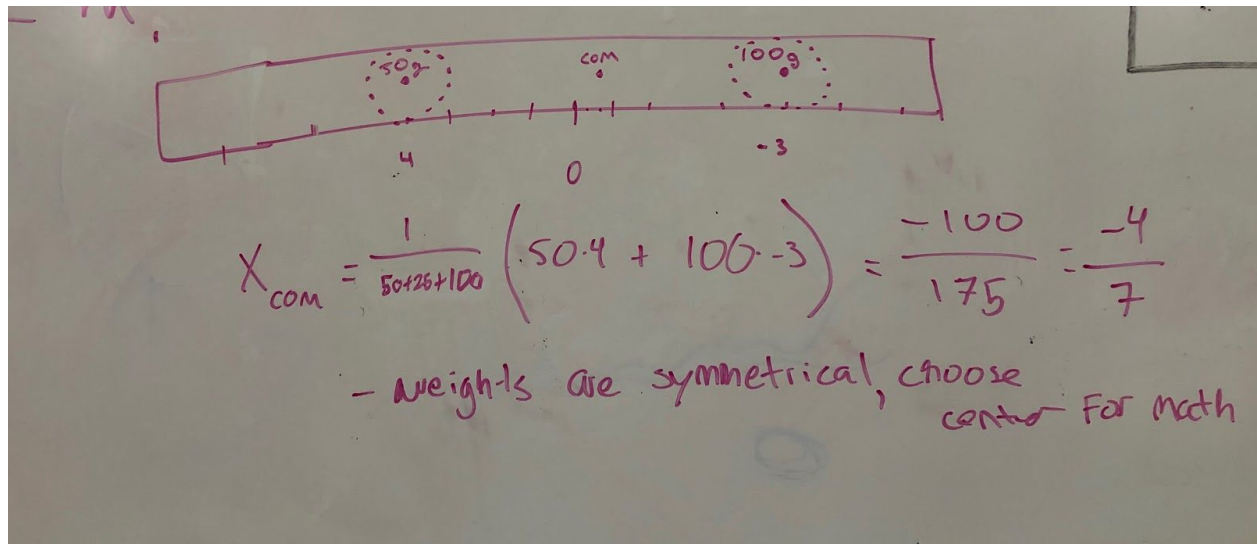 50g com 100g
4 0 -3
X_com = 1/(50+25+100) (50·4 + 100·-3) = -100/175 = -4/7
- weights are symmetrical, choose
center for math